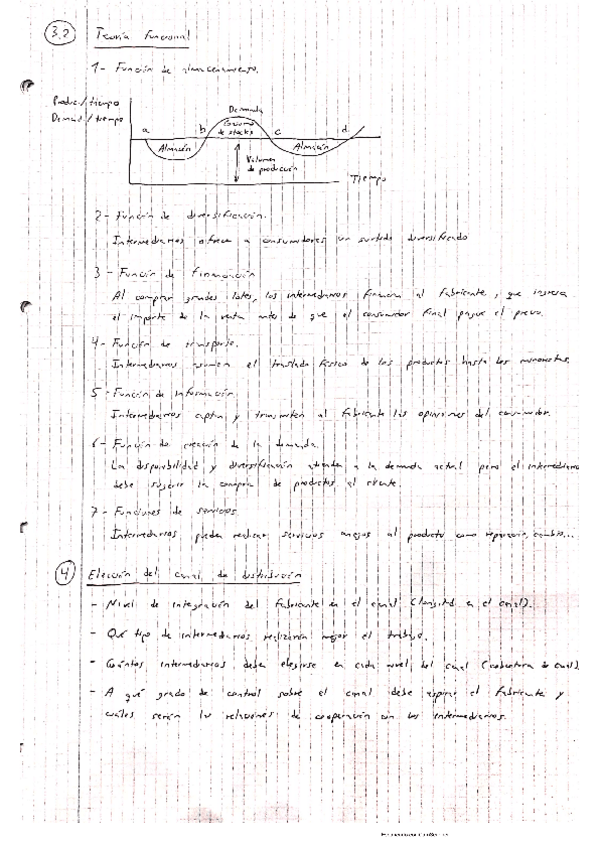 3.2 Teoría funcional
1- Función de almacenamiento.
Producc/tiempo
Demand/tiempo
Demanda
a b Consumo de stocks c d
Almacén Almacén
Volumen
de producción
Tiempo
2- Función de diversificación.
Intermediarios ofrece a consumidores un surtido diversificado
3- Función de financiación
Al comprar grandes lotes, los intermediarios financian al fabricante, que ingresa
el importe de la venta antes de que el consumidor final pague el precio.
4- Función de transporte.
Intermediarios asumen el traslado físico de los productos hasta los minoristas.
5- Función de información.
Intermediarios captan y transmiten al fabricante las opiniones del consumidor.
6- Función de creación de la demanda.
La disponibilidad y diversificación atienden a la demanda actual pero el intermediario
debe sugerir la compra de productos al cliente.
7- Funciones de servicios
Intermediarios pueden realizar servicios anejos al producto como reparación, cambio...
4 Elección del canal de distribución
- Nivel de integración del fabricante en el canal (longitd en el canal).
- Qué tipo de intermediarios realizarán mejor el trabajo.
- Cuántos intermediarios deben elegirse en cada nivel del canal (cobertura de canal).
- A qué grado de control sobre el canal debe aspirar el fabricante y
cuáles serán las relaciones de cooperación con los intermediarios.